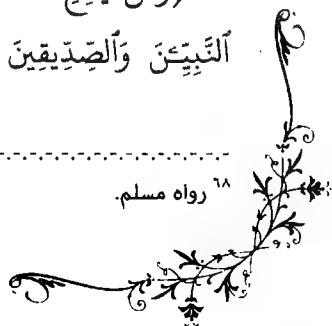 ٱلنَّبِيِّـۧنَ وَٱلصِّدِّيقِينَ
٦٨ رواه مسلم.